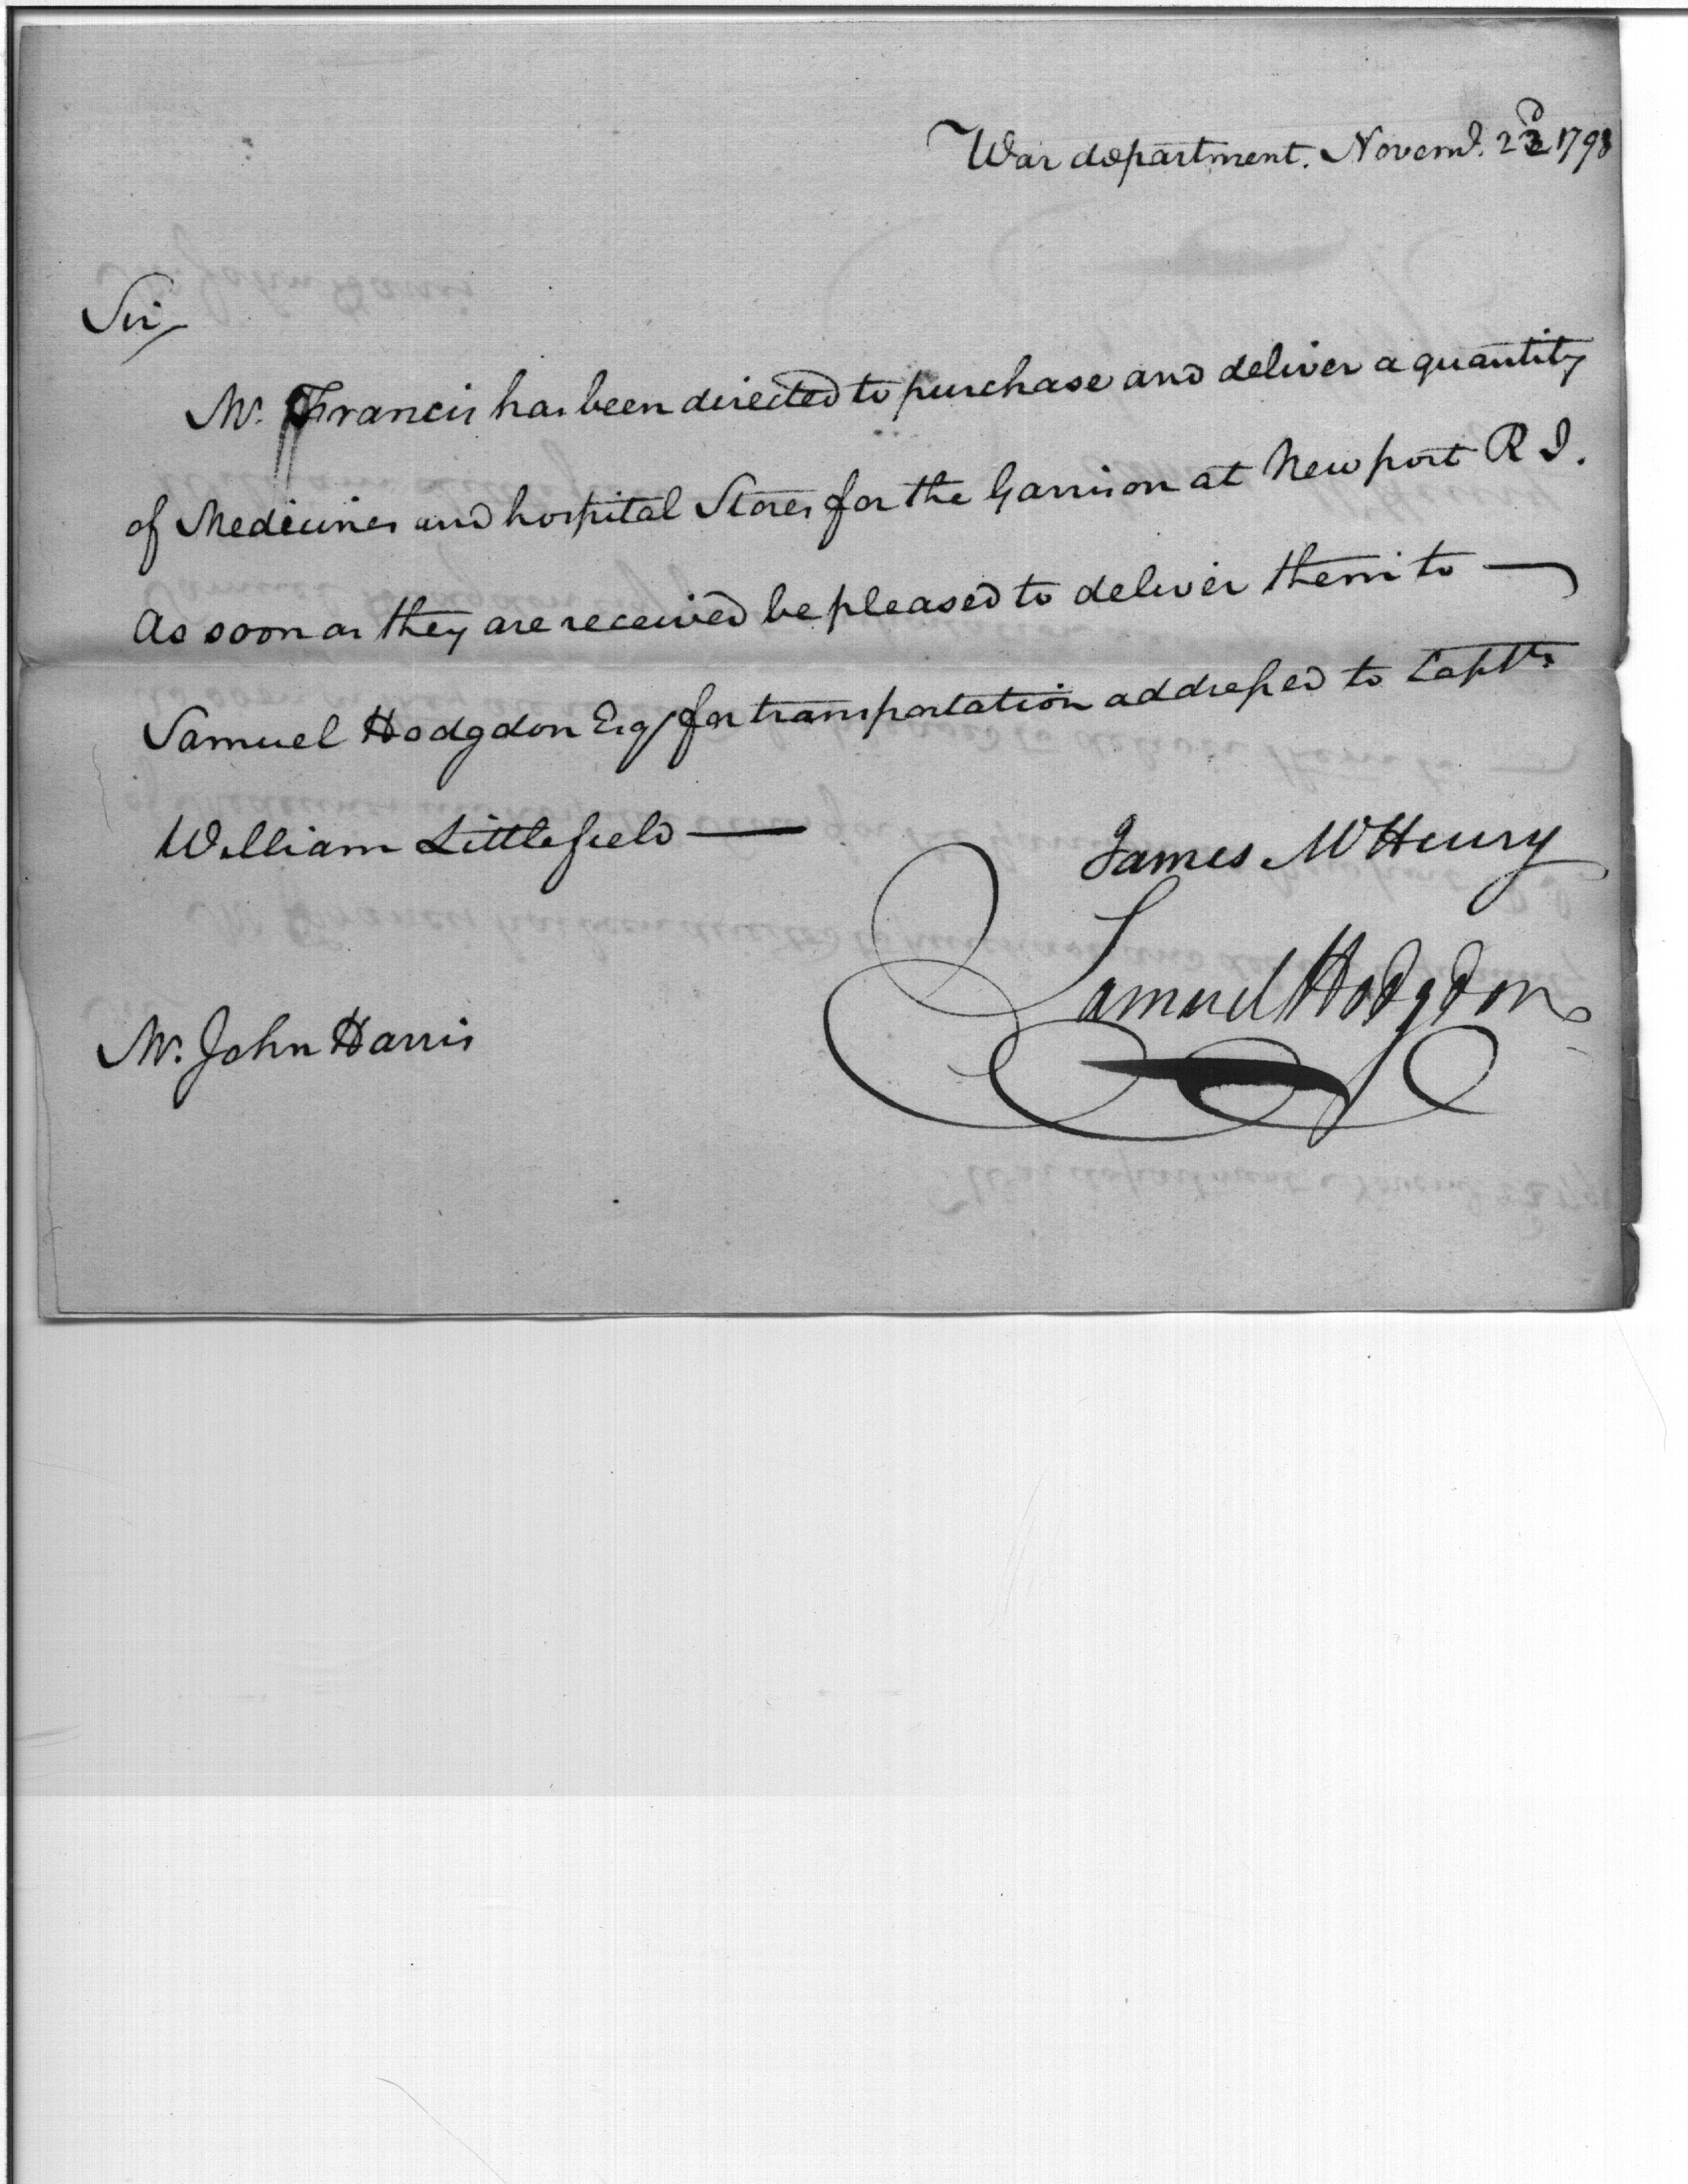 War department. Novemr. 22d 1798
Sir
Mr. Francis has been directed to purchase and deliver a quantity
of Medicines and hospital Stores for the Garrison at Newport R I.
As soon as they are received be pleased to deliver them to —
Samuel Hodgdon Esq for transportation addressed to Captn
William Littlefield —
James McHenry
Samuel Hodgdon
Mr. John Harris